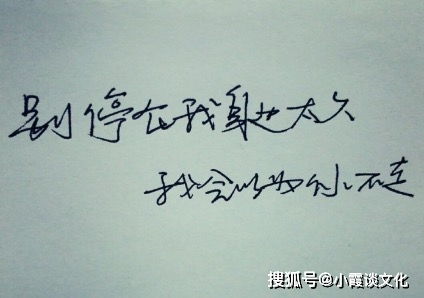 别停在我身边太久
我会以为你不走
搜狐号@小霞谈文化